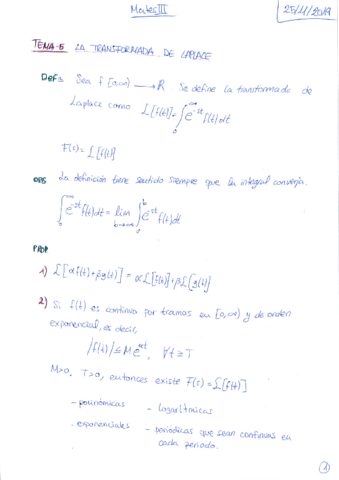 Mates III
25/11/2019
TEMA-5 LA TRANSFORMADA DE LAPLACE
Def: Sea f [0,∞) → R. Se define la transformada de
Laplace como L[f(t)] = ∫₀^∞ e^{-st} f(t) dt
F(s) = L[f(t)]
OBS La definición tiene sentido siempre que la integral converja.
∫₀^{+∞} e^{-st} f(t) dt = lim_{b→+∞} ∫₀^b e^{-st} f(t) dt
PROP
1) L[αf(t) + βg(t)] = αL[f(t)] + βL[g(t)]
2) Si f(t) es continua por tramos en [0,∞) y de orden
exponencial, es decir,
|f(t)| ≤ M e^{αt}, ∀t ≥ T
M>0, T>0, entonces existe F(s) = L[f(t)]
- polinómicas - logarítmicas
- exponenciales - periodicas que sean continuas en
cada periodo.
1